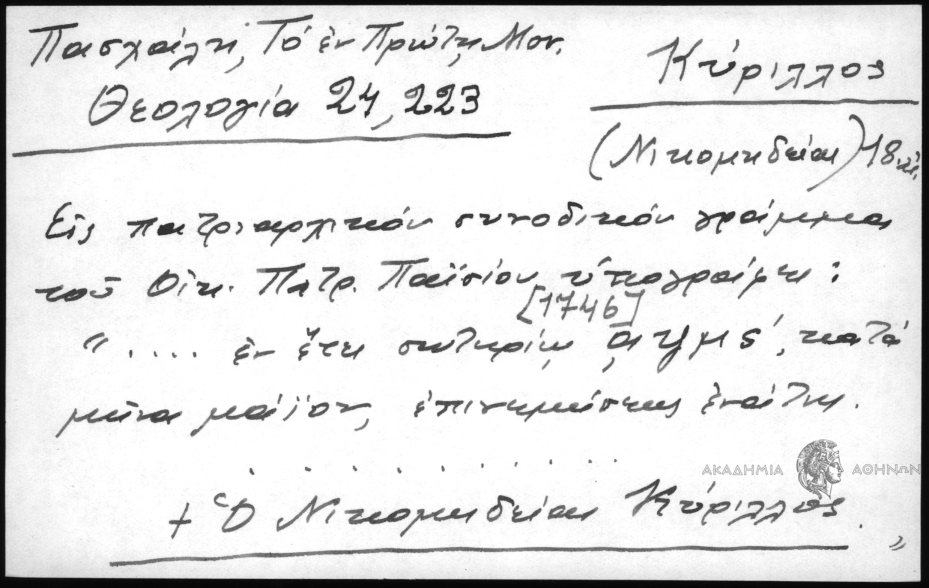 Πασχάλη, Τό ἐν Πρώτῃ Μον.
Θεολογία 24, 223
Κύριλλος
(Νικομηδείας) 18
Εἰς πατριαρχικόν συνοδικόν γράμμα
τοῦ Οἰκ. Πατρ. Παϊσίου ὑπογράφει:
[1746]
".... ἐν ἔτει σωτηρίῳ ͵αψμς΄, κατά
μῆνα μάϊον, ἐπινεμήσεως ἐνάτης.
. . . . . . . . . . .
ΑΚΑΔΗΜΙΑ ΑΘΗΝΩΝ
+ Ὁ Νικομηδείας Κύριλλος.
"